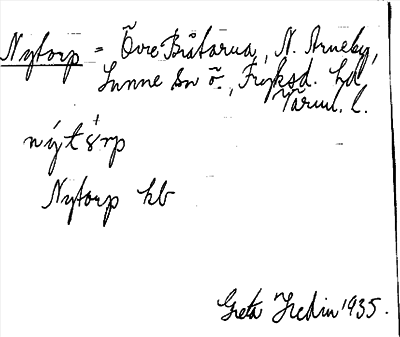 Nytorp = Övre Bråtarna, N. Arneby,
Sunne sn ö., Fryksd. hd
Värml. l.
nýtȣrp
Nytorp kb
Greta Hedin 1935.